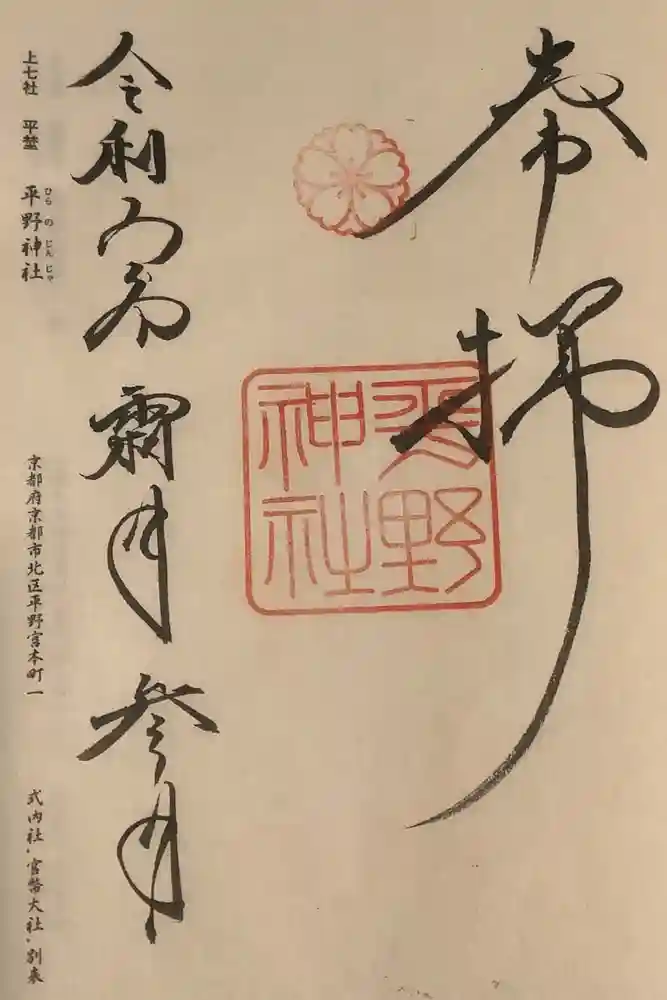 奉拝
平野神社
令和五年霜月参日
上七社 平埜 平野神社 京都府京都市北区平野宮本町一 式内社、官幣大社、別表
ひらのじんじゃ